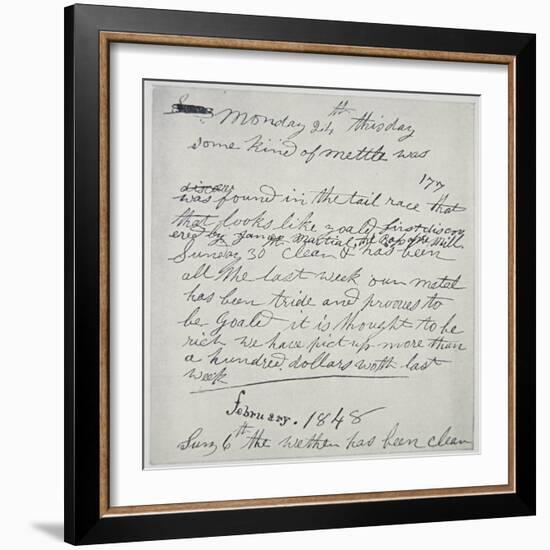 Monday 24th this day
some kind of mettle was
177
was found in the tail race that
that looks like goald, first discov
ered by James Martial, the Boss of the Mill
Sunday 30 clean & has been
all the last week our metal
has been tride and prooves to
be goald it is thought to be
rich we have pict up more than
a hundred dollars woth last
week
February. 1848
Sun 6th the wether has been clean